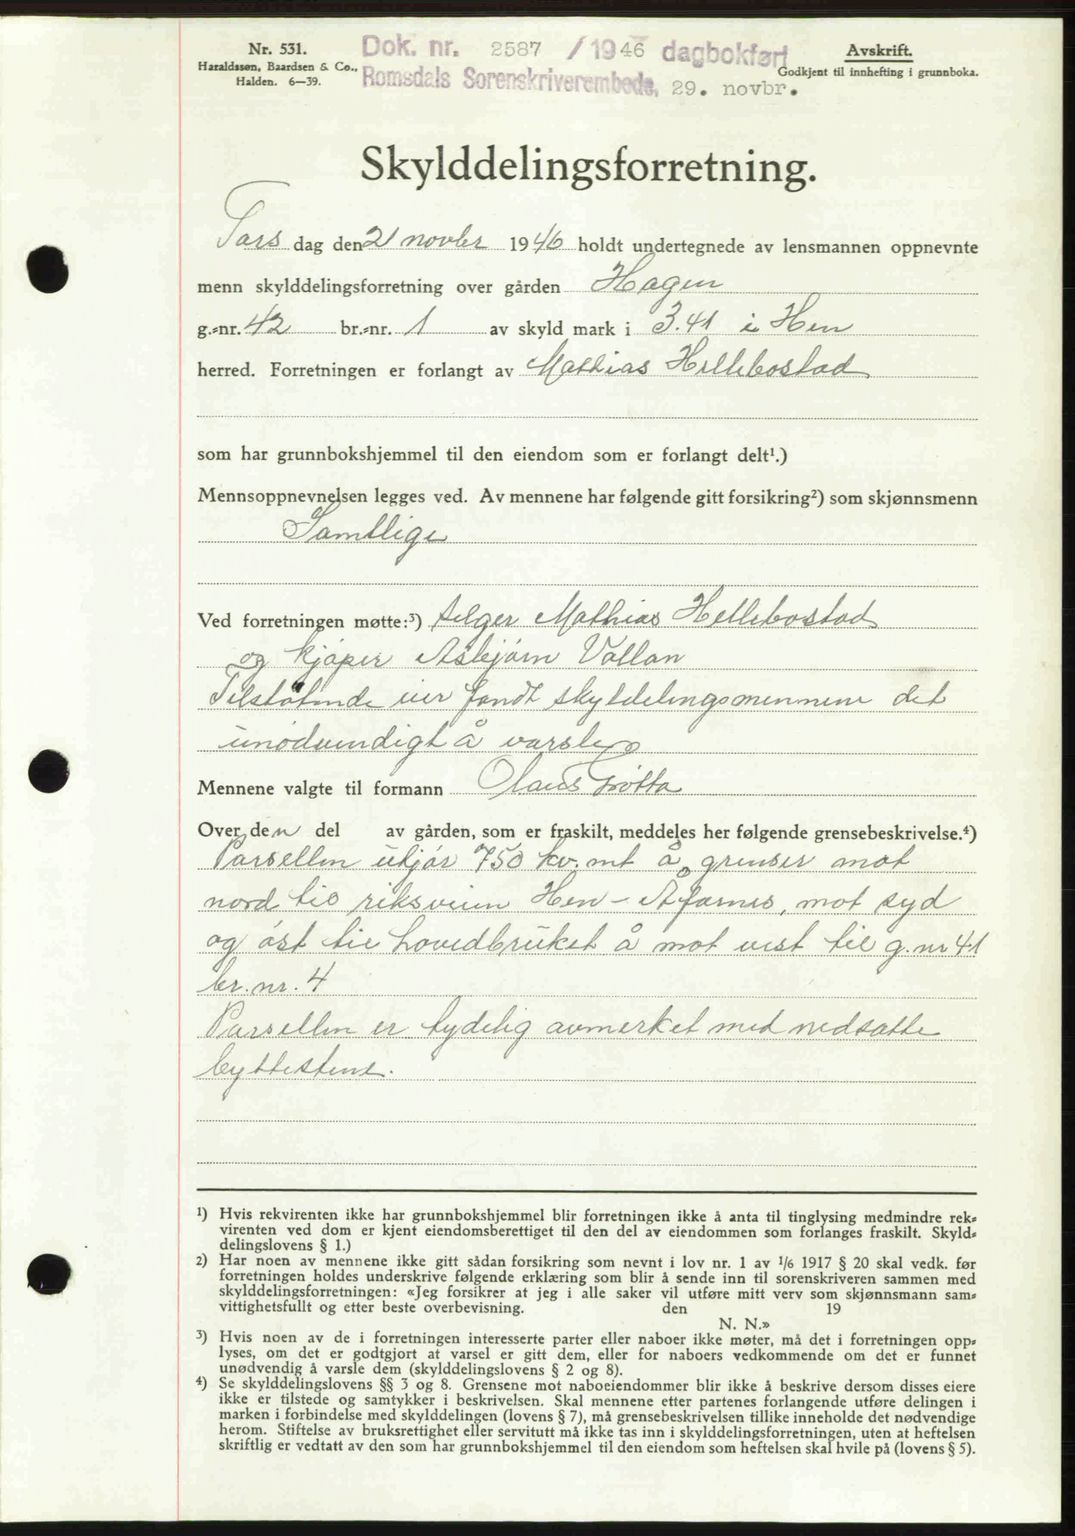 Nr. 531.
Haraldssøn, Baardsen & Co.,
Halden. 6—39.
Dok. nr. 2587 / 1946 dagbokført
Romsdals Sorenskriverembede, 29. novbr.
Avskrift.
Godkjent til innhefting i grunnboka.
Skylddelingsforretning.
Tors dag den 21 novbr 1946 holdt undertegnede av lensmannen oppnevnte
menn skylddelingsforretning over gården Hagen
g.-nr. 42 br.-nr. 1 av skyld mark i 3.41 i Hen
herred. Forretningen er forlangt av Mathias Hellebostad
som har grunnbokshjemmel til den eiendom som er forlangt delt¹.)
Mennsoppnevnelsen legges ved. Av mennene har følgende gitt forsikring²) som skjønnsmenn
Samtlige
Ved forretningen møtte:³) selger Mathias Hellebostad
og kjøper Asbjørn Vollan
Tilstøtende eier fandt skylddelingsmennene det
unødvendigt å varsle
Mennene valgte til formann Olaus Grøtta
Over den del av gården, som er fraskilt, meddeles her følgende grensebeskrivelse.⁴)
Parsellen utjør 750 kv. mt å grenser mot
nord til riksveien Hen - Åfarnes, mot syd
og øst til hovedbruket å mot vest til g.nr 41
br.nr. 4
Parsellen er tydelig avmerket med nedsatte
byttestene.
¹) Hvis rekvirenten ikke har grunnbokshjemmel blir forretningen ikke å anta til tinglysing medmindre rek-
virenten ved dom er kjent eiendomsberettiget til den del av eiendommen som forlanges fraskilt. Skyld-
delingslovens § 1.)
²) Har noen av mennene ikke gitt sådan forsikring som nevnt i lov nr. 1 av ¹/₆ 1917 § 20 skal vedk. før
forretningen holdes underskrive følgende erklæring som blir å sende inn til sorenskriveren sammen med
skylddelingsforretningen: «Jeg forsikrer at jeg i alle saker vil utføre mitt verv som skjønnsmann sam-
vittighetsfullt og etter beste overbevisning. den 19
N. N.»
³) Hvis noen av de i forretningen interesserte parter eller naboer ikke møter, må det i forretningen opp-
lyses, om det er godtgjort at varsel er gitt dem, eller for naboers vedkommende om det er funnet
unødvendig å varsle dem (skylddelingslovens § 2 og 8).
⁴) Se skylddelingslovens §§ 3 og 8. Grensene mot naboeiendommer blir ikke å beskrive dersom disses eiere
ikke er tilstede og samtykker i beskrivelsen. Skal mennene etter partenes forlangende utføre delingen i
marken i forbindelse med skylddelingen (lovens § 7), må grensebeskrivelsen tillike inneholde det nødvendige
herom. Stiftelse av bruksrettighet eller servitutt må ikke tas inn i skylddelingsforretningen, uten at heftelsen
skriftlig er vedtatt av den som har grunnbokshjemmel til den eiendom som heftelsen skal hvile på (lovens § 5).